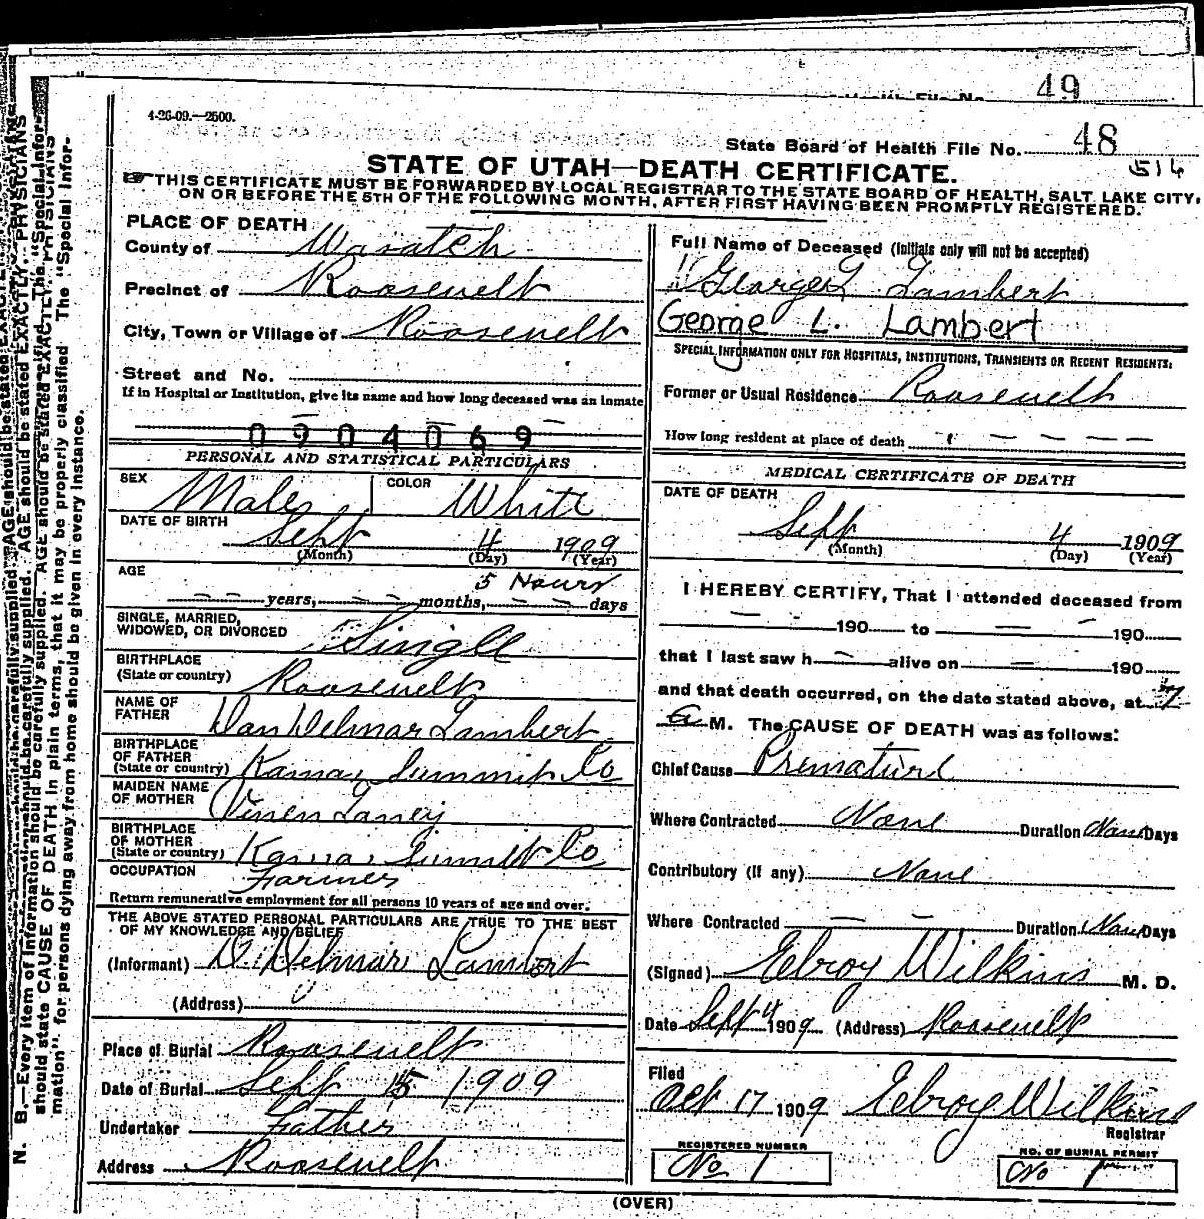 49
4-26-09.—2500.
State Board of Health File No. 48
516
STATE OF UTAH—DEATH CERTIFICATE.
☞THIS CERTIFICATE MUST BE FORWARDED BY LOCAL REGISTRAR TO THE STATE BOARD OF HEALTH, SALT LAKE CITY,
ON OR BEFORE THE 5TH OF THE FOLLOWING MONTH, AFTER FIRST HAVING BEEN PROMPTLY REGISTERED.
PLACE OF DEATH
County of Wasatch
Precinct of Roosevelt
City, Town or Village of Roosevelt
Street and No.
If in Hospital or Institution, give its name and how long deceased was an inmate
0904069
PERSONAL AND STATISTICAL PARTICULARS
SEX Male COLOR White
DATE OF BIRTH
Sept 4 1909
(Month) (Day) (Year)
AGE 5 Hours
— — years, — — months, — — — days
SINGLE, MARRIED,
WIDOWED, OR DIVORCED Single
BIRTHPLACE
(State or country) Roosevelt
NAME OF
FATHER Dan Delmar Lambert
BIRTHPLACE
OF FATHER
(State or country) Kamas Summit Co
MAIDEN NAME
OF MOTHER
BIRTHPLACE
OF MOTHER
(State or country) Kamas Summit Co
OCCUPATION Farmer
Return remunerative employment for all persons 10 years of age and over.
THE ABOVE STATED PERSONAL PARTICULARS ARE TRUE TO THE BEST
OF MY KNOWLEDGE AND BELIEF
(Informant) D. Delmar Lambert
(Address)
Place of Burial Roosevelt
Date of Burial Sept 5 1909
Undertaker Father
Address Roosevelt
Full Name of Deceased (Initials only will not be accepted)
George L Lambert
George L. Lambert
SPECIAL INFORMATION ONLY FOR HOSPITALS, INSTITUTIONS, TRANSIENTS OR RECENT RESIDENTS:
Former or Usual Residence Roosevelt
How long resident at place of death — — — —
MEDICAL CERTIFICATE OF DEATH
DATE OF DEATH
Sept 4 1909
(Month) (Day) (Year)
I HEREBY CERTIFY, That I attended deceased from
— 190 to — — 190
that I last saw h — alive on — 190
and that death occurred, on the date stated above, at 7
a M. The CAUSE OF DEATH was as follows:
Chief Cause Premature
Where Contracted None Duration None Days
Contributory (if any) None
Where Contracted — — Duration None Days
(Signed) Elroy Wilkins M. D.
Date Sept 4 1909 (Address) Roosevelt
Filed
Oct 17 1909 Elroy Wilkins
Registrar
REGISTERED NUMBER
No 1
NO. OF BURIAL PERMIT
No 1
(OVER)
N. B.—Every item of information should be carefully supplied. AGE should be stated EXACTLY. PHYSICIANS
should state CAUSE OF DEATH in plain terms, that it may be properly classified. The "Special Infor-
mation" for persons dying away from home should be given in every instance.